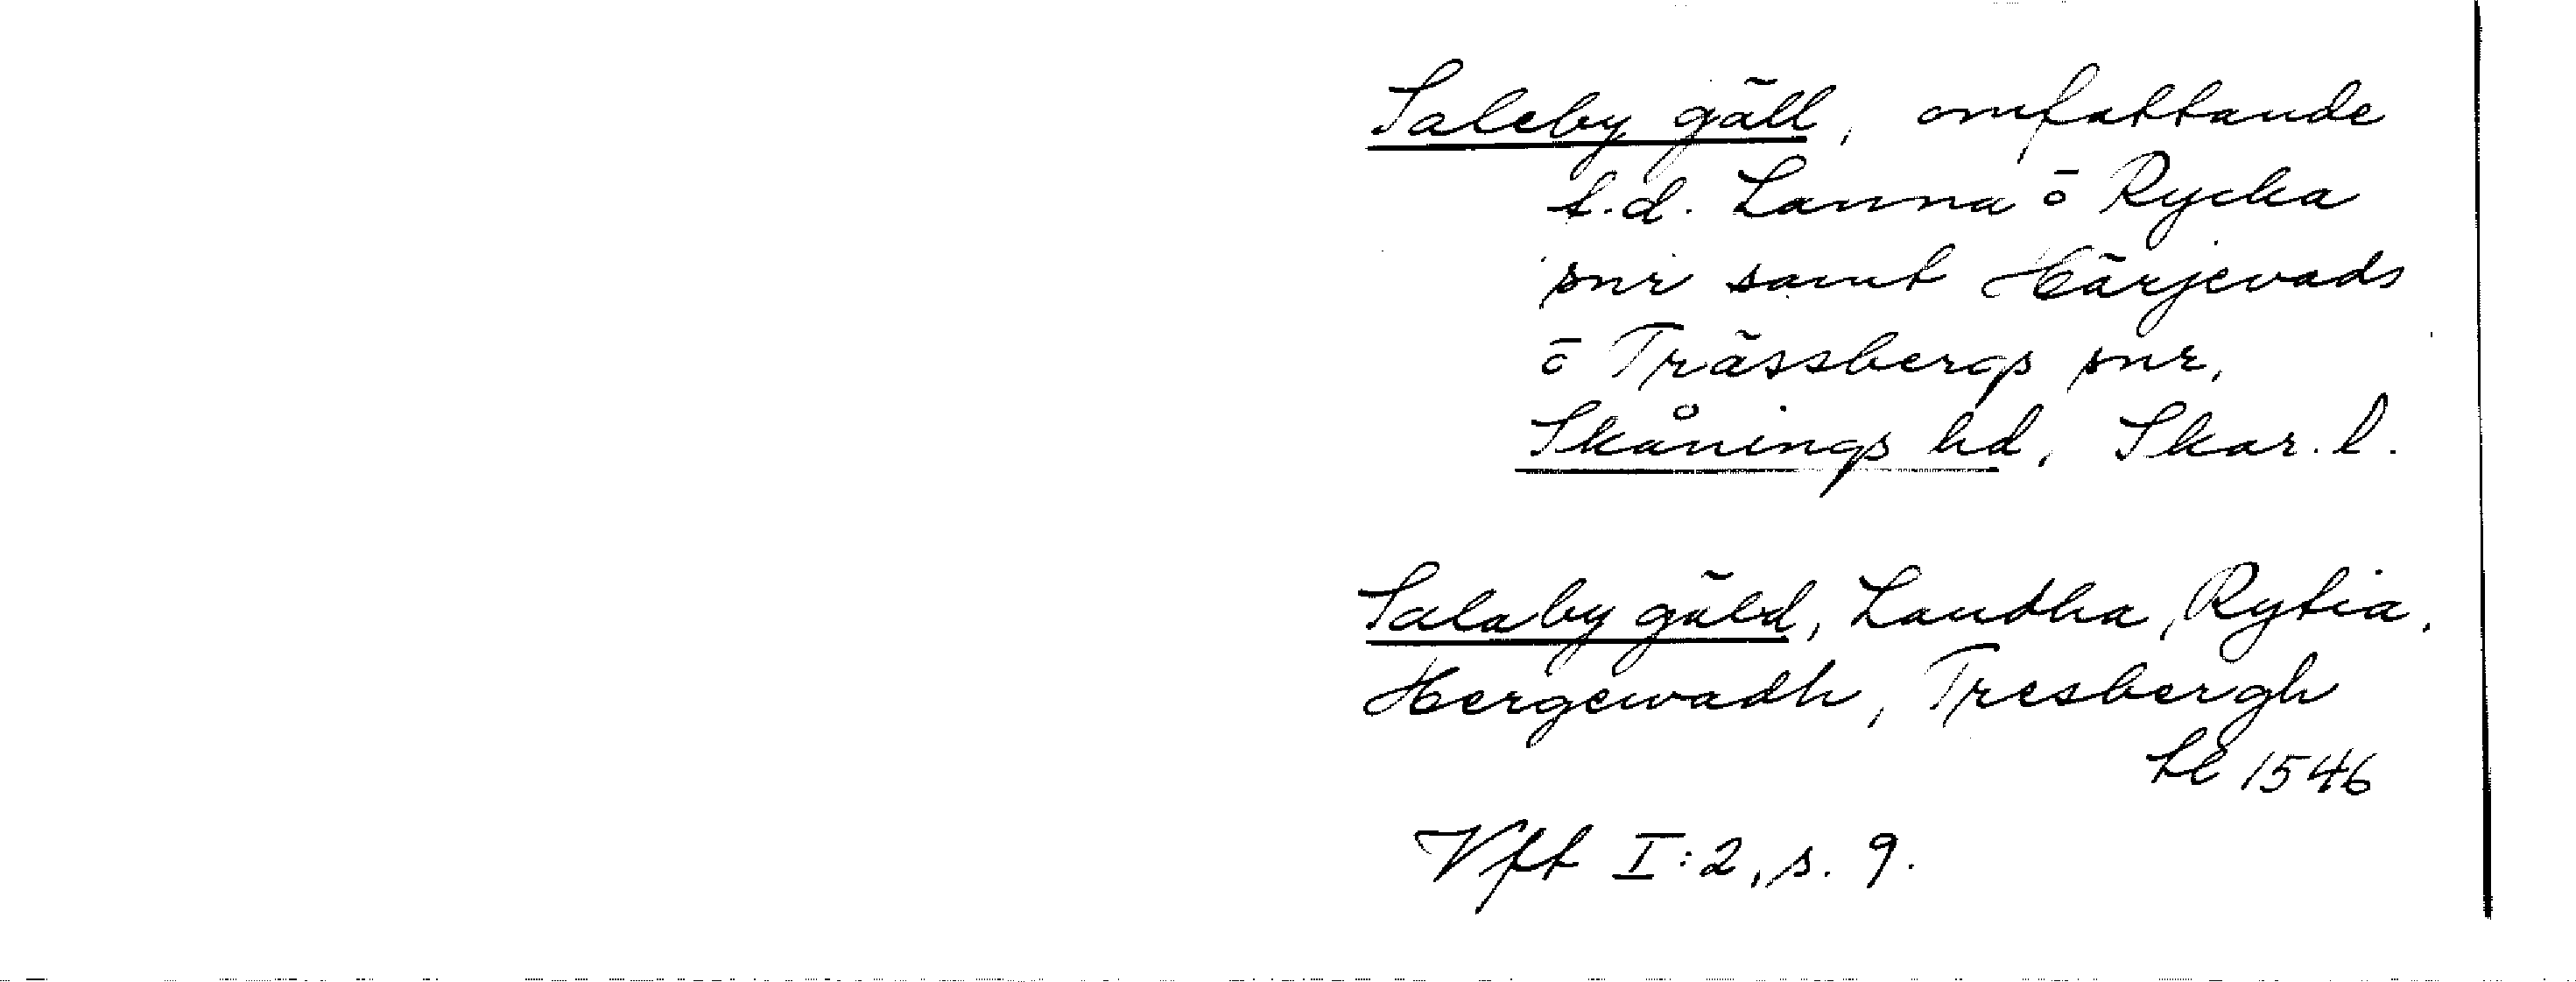 Saleby gäll, omfattande
f.d. Lanna ō Rycka
snr samt Härjevads
ō Trässbergs snr,
Skånings hd, Skar. l.
Salaby gäld, Landha, Rytia,
Hergewadh, Tresbergh
tl 1546
Vft I:2, s. 9.